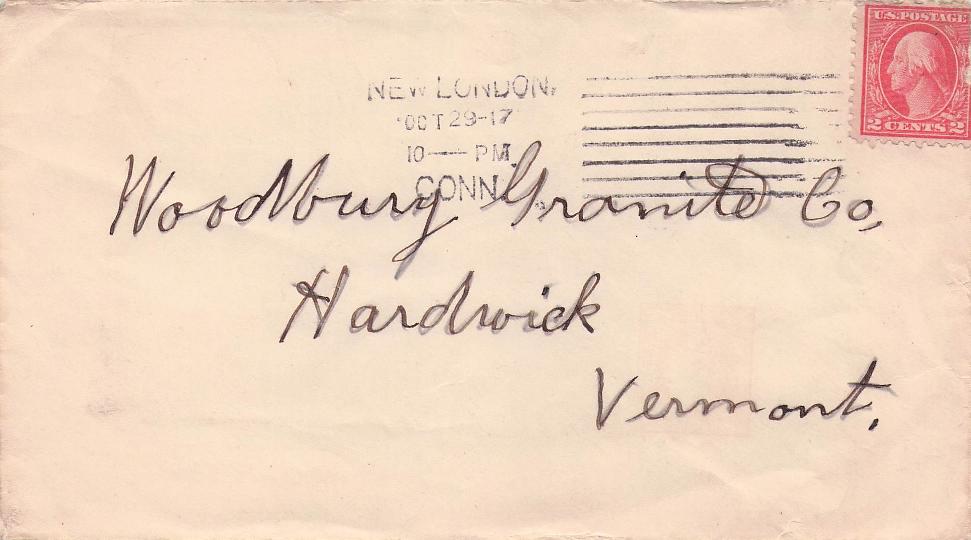 U.S. POSTAGE
2 CENTS 2
NEW LONDON,
OCT 29-17
10 — PM
CONN.
Woodbury Granite Co,
Hardwick
Vermont.